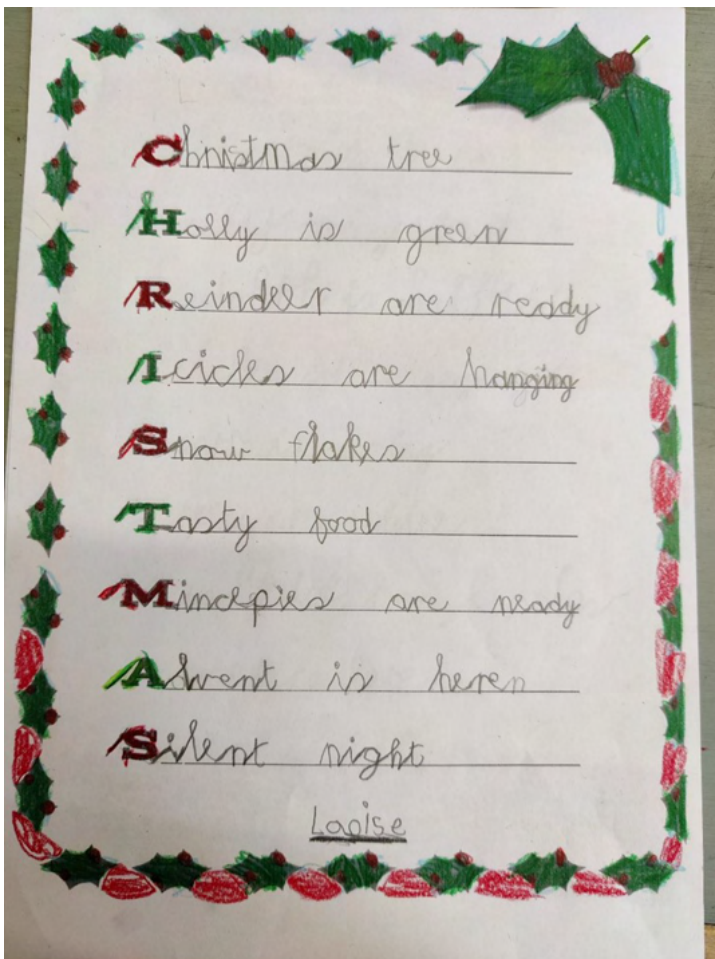 Christmas tree
Holly is green
Reindeer are ready
Icicles are hanging
Snow flakes
Tasty food
Mincepies are ready
Advent is heren
Silent night
Laoise